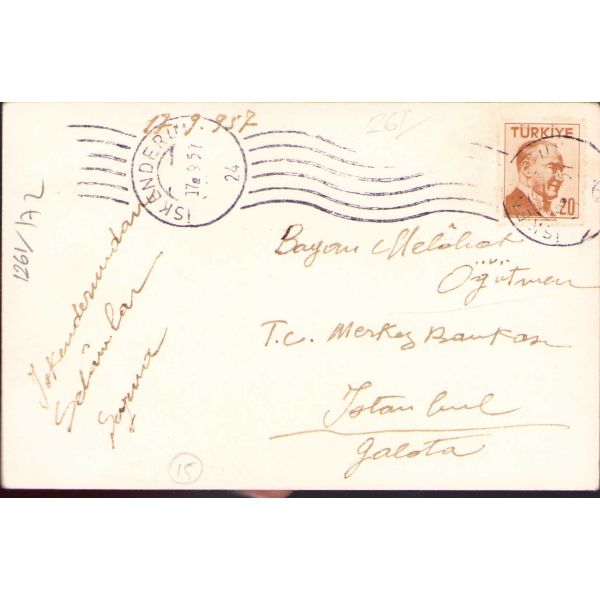 17.9.957
261/
İSKENDERUN
17.9.57
24
TÜRKİYE
20
1261/1A2
İskenderundan
Selâmlar
Bayan Melâhat
Öğütmen
T.C. Merkez Bankası
İstanbul
Galata
15